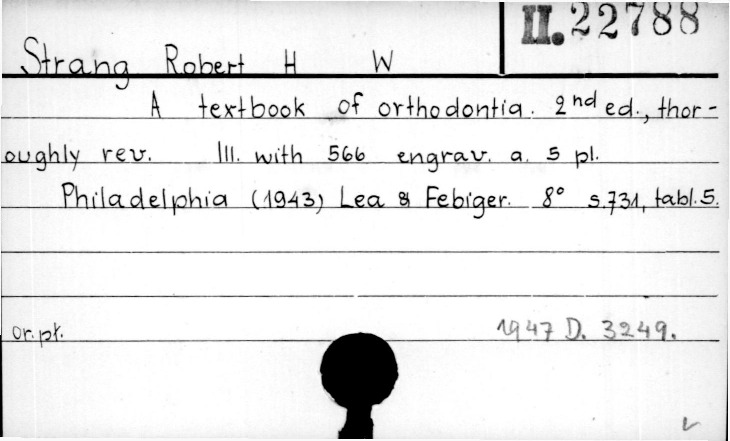 II. 22788
Strang Robert H W
A textbook of orthodontia. 2nd ed., thor-
oughly rev. Ill. with 566 engrav. a. 5 pl.
Philadelphia (1943) Lea & Febiger. 8° s.731, tabl.5.
or.pł. 1947 D. 3249.